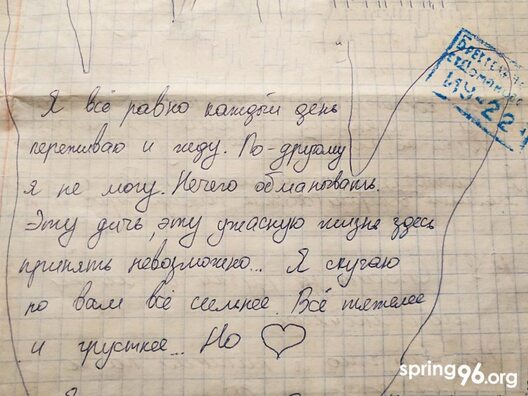 Я всё равно каждый день
переживаю и жду. По-другому
я не могу. Нечего обманывать.
Эту дичь, эту ужасную жизнь здесь
принять невозможно... Я скучаю
по вам всё сильнее. Всё тяжелее
и грустнее... Но
spring96.org